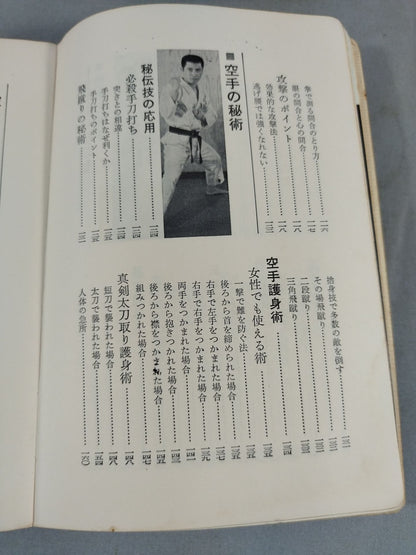 拳で測る間合のとり方……一一六
眼の間合と心の間合……一一七
攻撃のポイント……一一八
効果的な攻撃法……一一八
逃げ腰では強くなれない……一二一
■空手の秘術
秘伝技の応用……一二四
必殺手刀打ち……一二四
突きとの相違……一二四
手刀打ちはなぜ利くか……一二五
手刀打ちのポイント……一二五
飛蹴りの秘術……一三一
捨身技で多数の敵を倒す……一三一
その場飛蹴り……一三一
二段蹴り……一三三
三角飛蹴り……一三四
空手護身術
女性でも使える術……一三五
一撃で難を防ぐ法……一三五
後ろから首を締められた場合……一三五
右手で左手をつかまれた場合……一三六
右手で右手をつかまれた場合……一三九
両手をつかまれた場合……一四一
後ろから抱きつかれた場合……一四三
後ろから襟をつかまれた場合……一四五
組みつかれた場合……一四七
真剣太刀取り護身術……一四八
短刀で襲われた場合……一四八
太刀で襲われた場合……一五四
人体の急所……一六〇